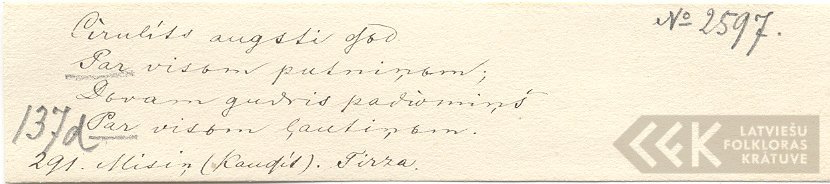 Cīrulīts augsti dzied
№ 2597.
Par visom putniņom;
Dovam gudris padiomiņš
137d
Par visom ļautiņom.
291. Misiņ (Kaudzīt). Tirza.
LATVIEŠU
FOLKLORAS
KRĀTUVE